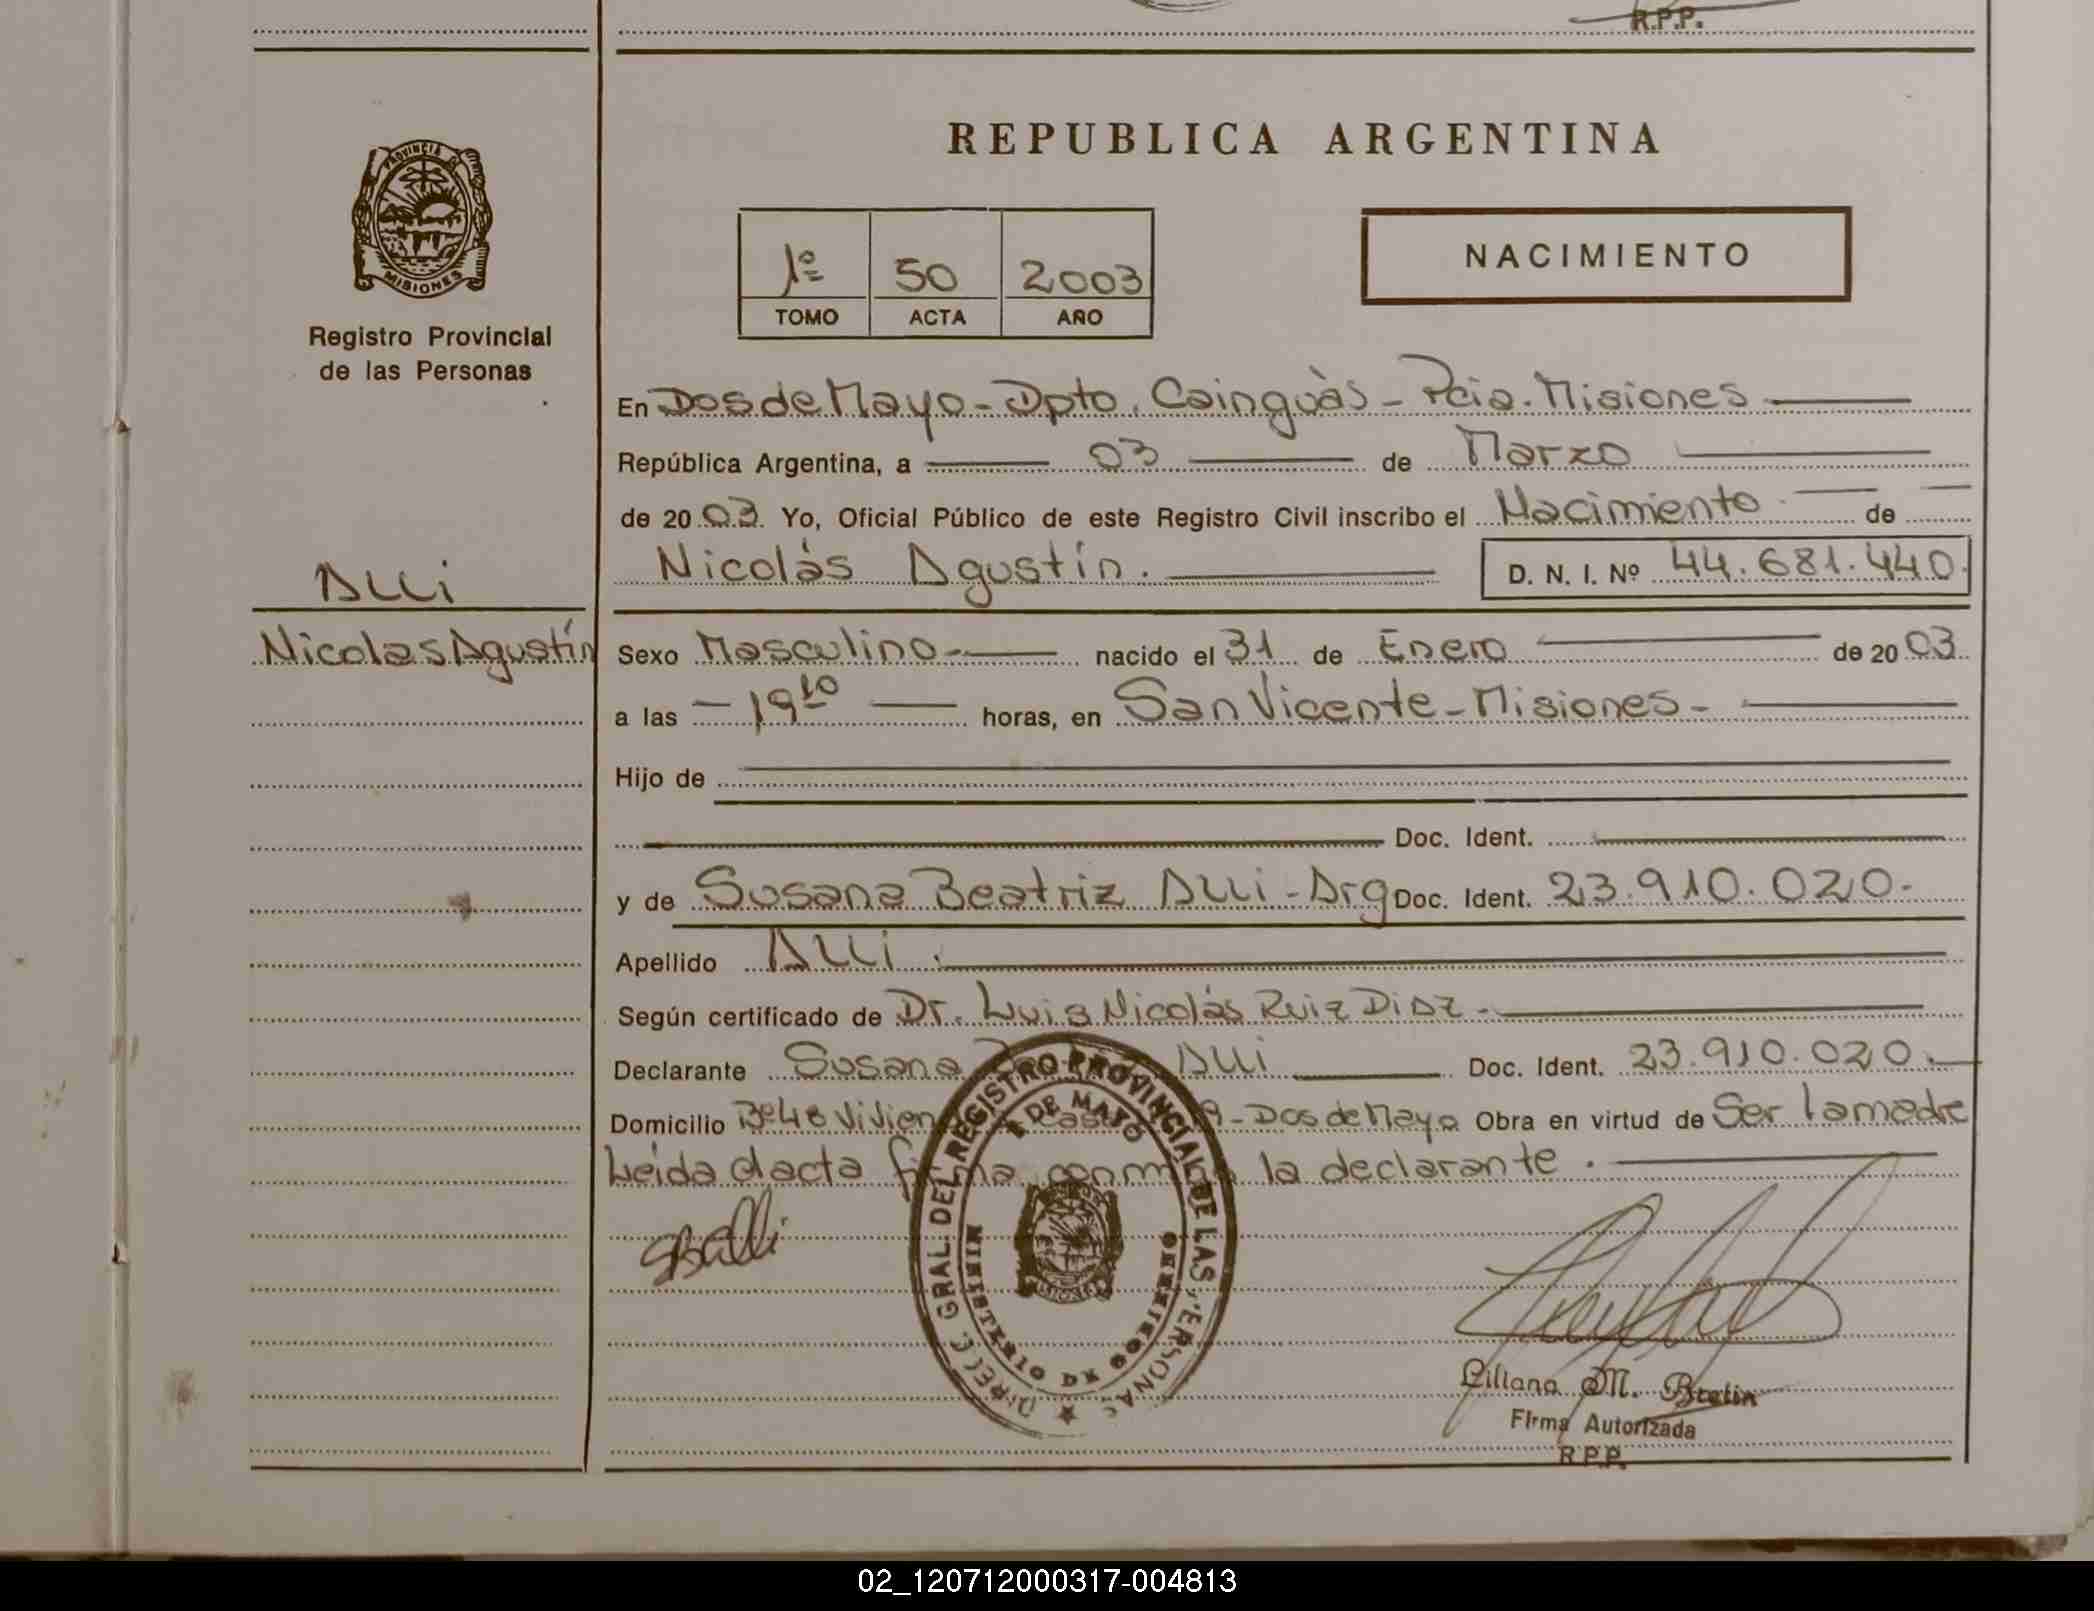 R.P.P.
REPUBLICA ARGENTINA
PROVINCIA
MISIONES
Registro Provincial
de las Personas
1º 50 2003
TOMO ACTA AÑO
NACIMIENTO
En Dos de Mayo - Dpto. Cainguàs - Pcia. Misiones
República Argentina, a 03 de Marzo
de 2003. Yo, Oficial Público de este Registro Civil inscribo el Nacimiento de
Nicolás Agustín. D. N. I. Nº 44.681.440.
Alli
Nicolas Agustín
Sexo Masculino nacido el 31 de Enero de 2003
a las 19 10 horas, en San Vicente - Misiones -
Hijo de
Doc. Ident.
y de Susana Beatriz Alli - Arg Doc. Ident. 23.910.020.
Apellido Alli.
Según certificado de Dr. Luis Nicolás Ruiz Diaz -
Declarante Susana Alli Doc. Ident. 23.910.020.
Domicilio Bº 48 Vivien 9 - Dos de Mayo Obra en virtud de Ser la madre
Leida el acta firma conmigo la declarante.
DIRECC. GRAL. DEL REGISTRO PROVINCIAL DE LAS PERSONAS
DE MAYO
MINISTERIO DE GOBIERNO
SBAlli
Liliana M.
Firma Autorizada
R.P.P.
02_120712000317-004813